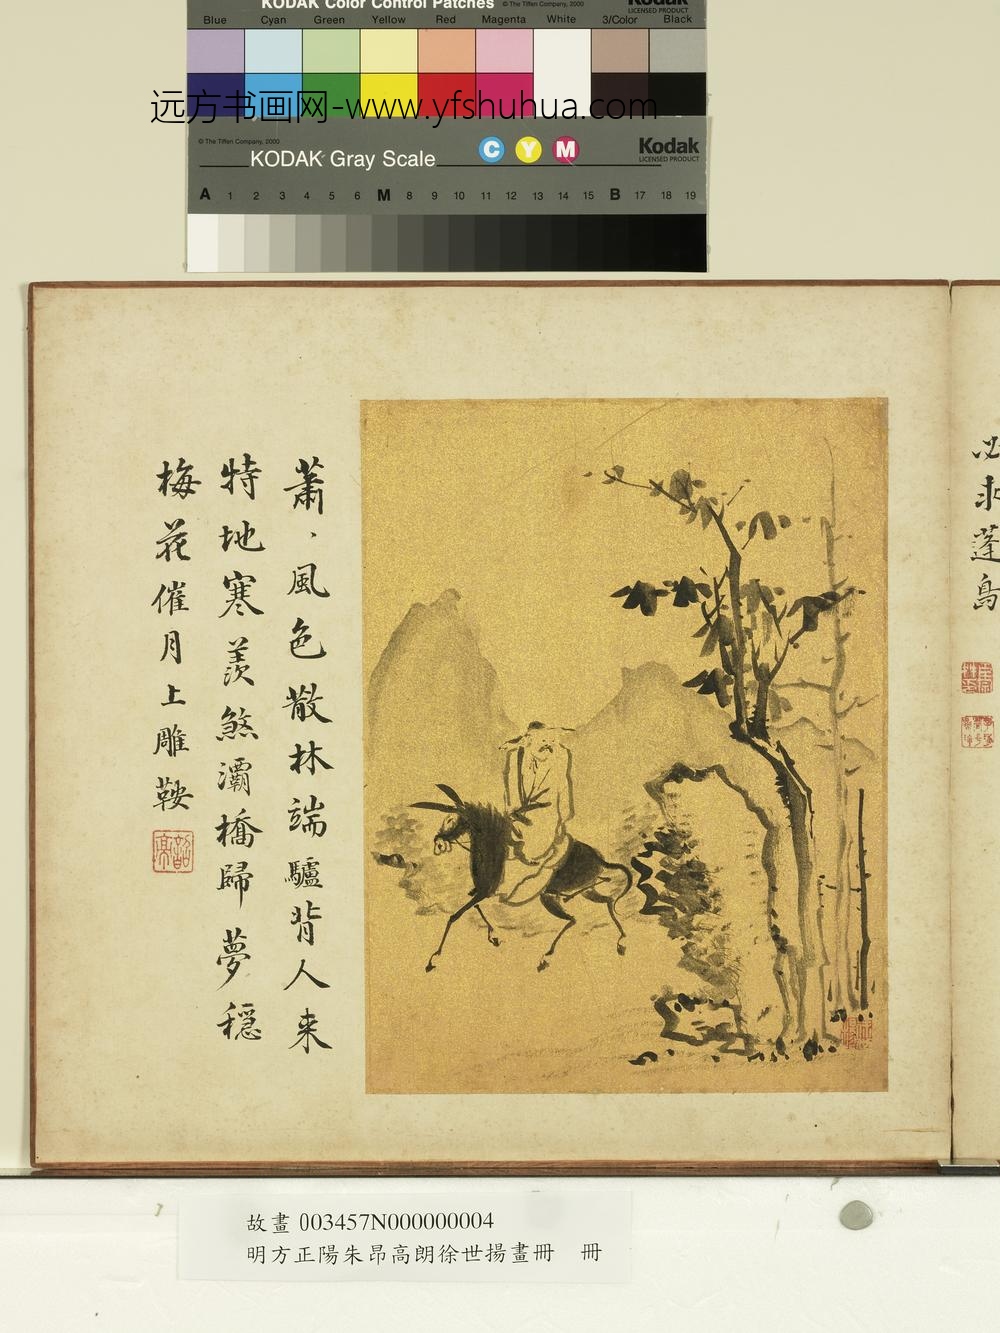 KODAK Color Control Patches
© The Tiffen Company, 2000
Kodak
LICENSED PRODUCT
Blue Cyan Green Yellow Red Magenta White 3/Color Black
远方书画网-www.yfshuhua.com
© The Tiffen Company, 2000
KODAK Gray Scale
C Y M
Kodak
LICENSED PRODUCT
A 1 2 3 4 5 6 M 8 9 10 11 12 13 14 15 B 17 18 19
蓬島
蕭、風色散林端驢背人来
特地寒羨煞灞橋歸夢穩
梅花催月上雕鞍
故畫 003457N000000004
明方正陽朱昂高朗徐世揚畫冊 冊